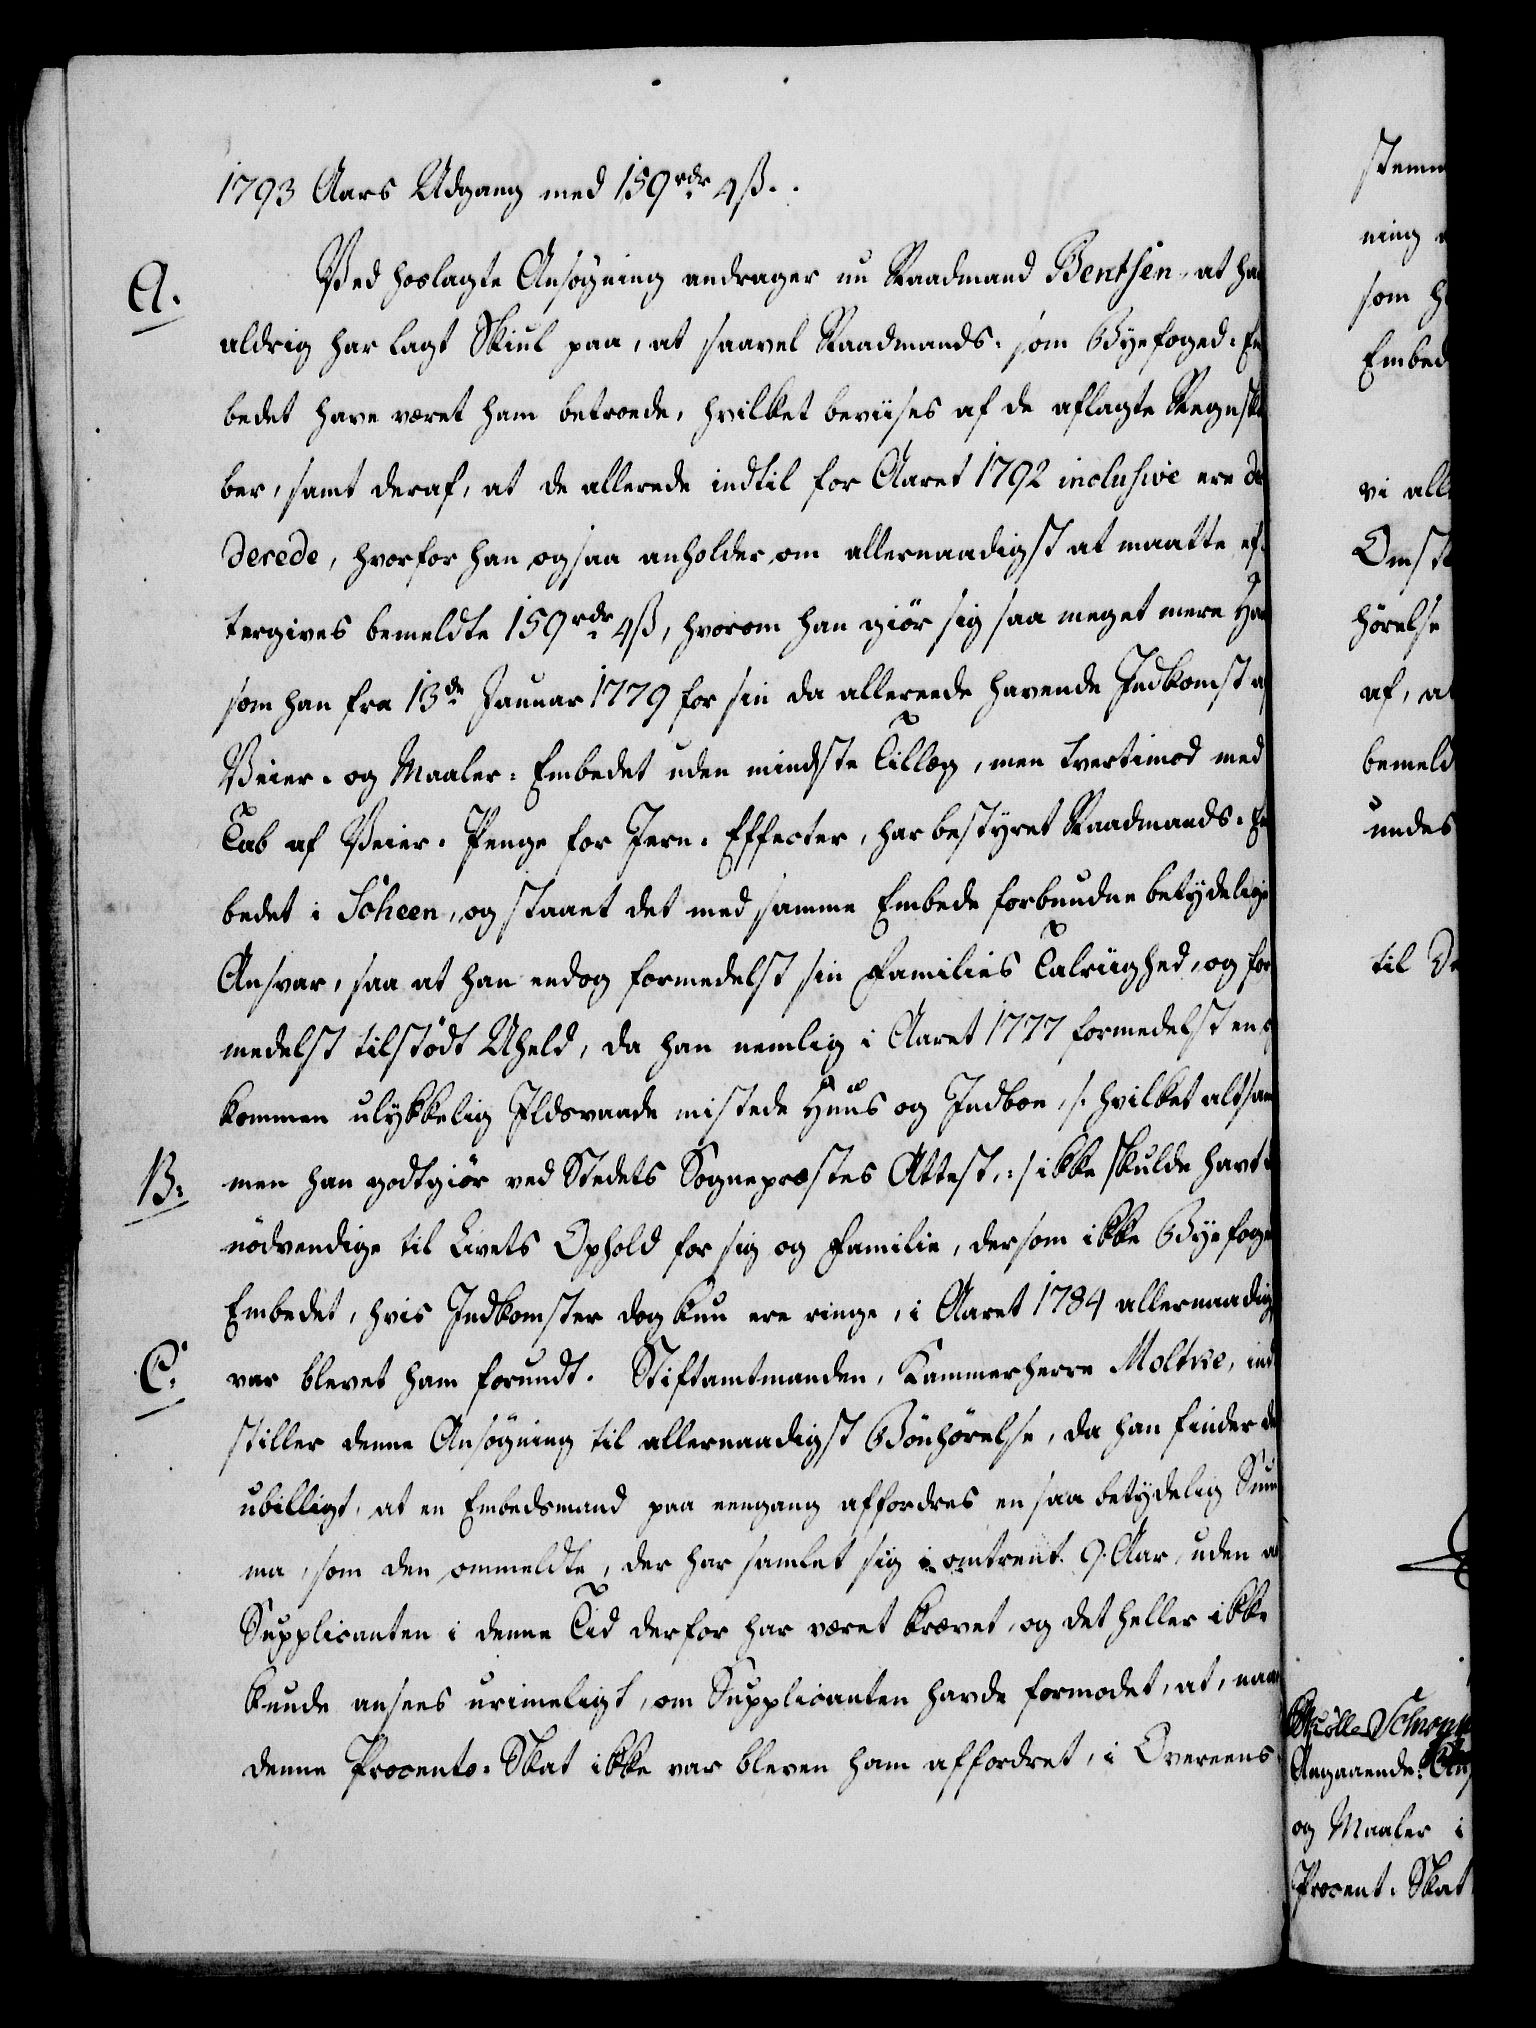 1793 Aars Udgang med 159 rdr 4 ß.
A.
Ved hoslagte Ansøgning andrager nu Raadmand Bentsen, at ha
aldrig har lagt Skiul paa, at saavel Raadmands- som Byefoged-E
bedet have været ham betroede, hvilket beviises af de aflagte Regnsk
ber, samt deraf, at de allerede indtil for Aaret 1792 inclusive ere de
derede, hvorfor han ogsaa anholder om allernaadigst at maatte ef-
tergives bemeldte 159 rdr 4 ß, hvorom han giør sig saa meget mere Haa
som han fra 13de Januar 1779 for sin da allereede havende Indkomst a
Veier- og Maaler-Embedet uden mindste Tillæg, men tvertimod med
Tab af Veier-Penge for Jern-Effecter, har bestyret Raadmands-E
bedet i Scheen, og staaet det med samme Embede forbundne betydelige
Ansvar, saa at han endog formedelst sin Families Talriighed, og for
medelst tilstødt Uheld, da han nemlig i Aaret 1777 formedelst en
kommen ulykkelig Ildsvaade mistede Huus og Indboe, /: hvilket altsam
B.
men han godtgiør ved Stedets Sognepræstes Attest, :/ ikke skulde havt
nødvendige til Livets Ophold for sig og Familie, dersom ikke Byefoge
Embedet, hvis Indkomster dog kun ere ringe, i Aaret 1784 allernaadig
C.
var blevet ham forundt. Stiftamtmanden, Kammerherre Moltke, ind
stiller denne Ansøgning til allernaadigst Bønhørelse, da han finder de
ubilligt, at en Embedsmand paa eengang affordres en saa betydelig Sum
ma, som den ommeldte, der har samlet sig i omtrent 9. Aar, uden a
Supplicanten i denne Tid derfor har været krævet, og det heller ikke
kunde ansees urimeligt, om Supplicanten havde formodet, at, naar
denne Procento-Skat ikke var bleven ham affordret, i Overeens-
stemm
ning
som h
Embed
vi all
Omst
hørelse
af, at
bemeld
undes
til De
Angaaende
og Maaler i
Procent-Skat